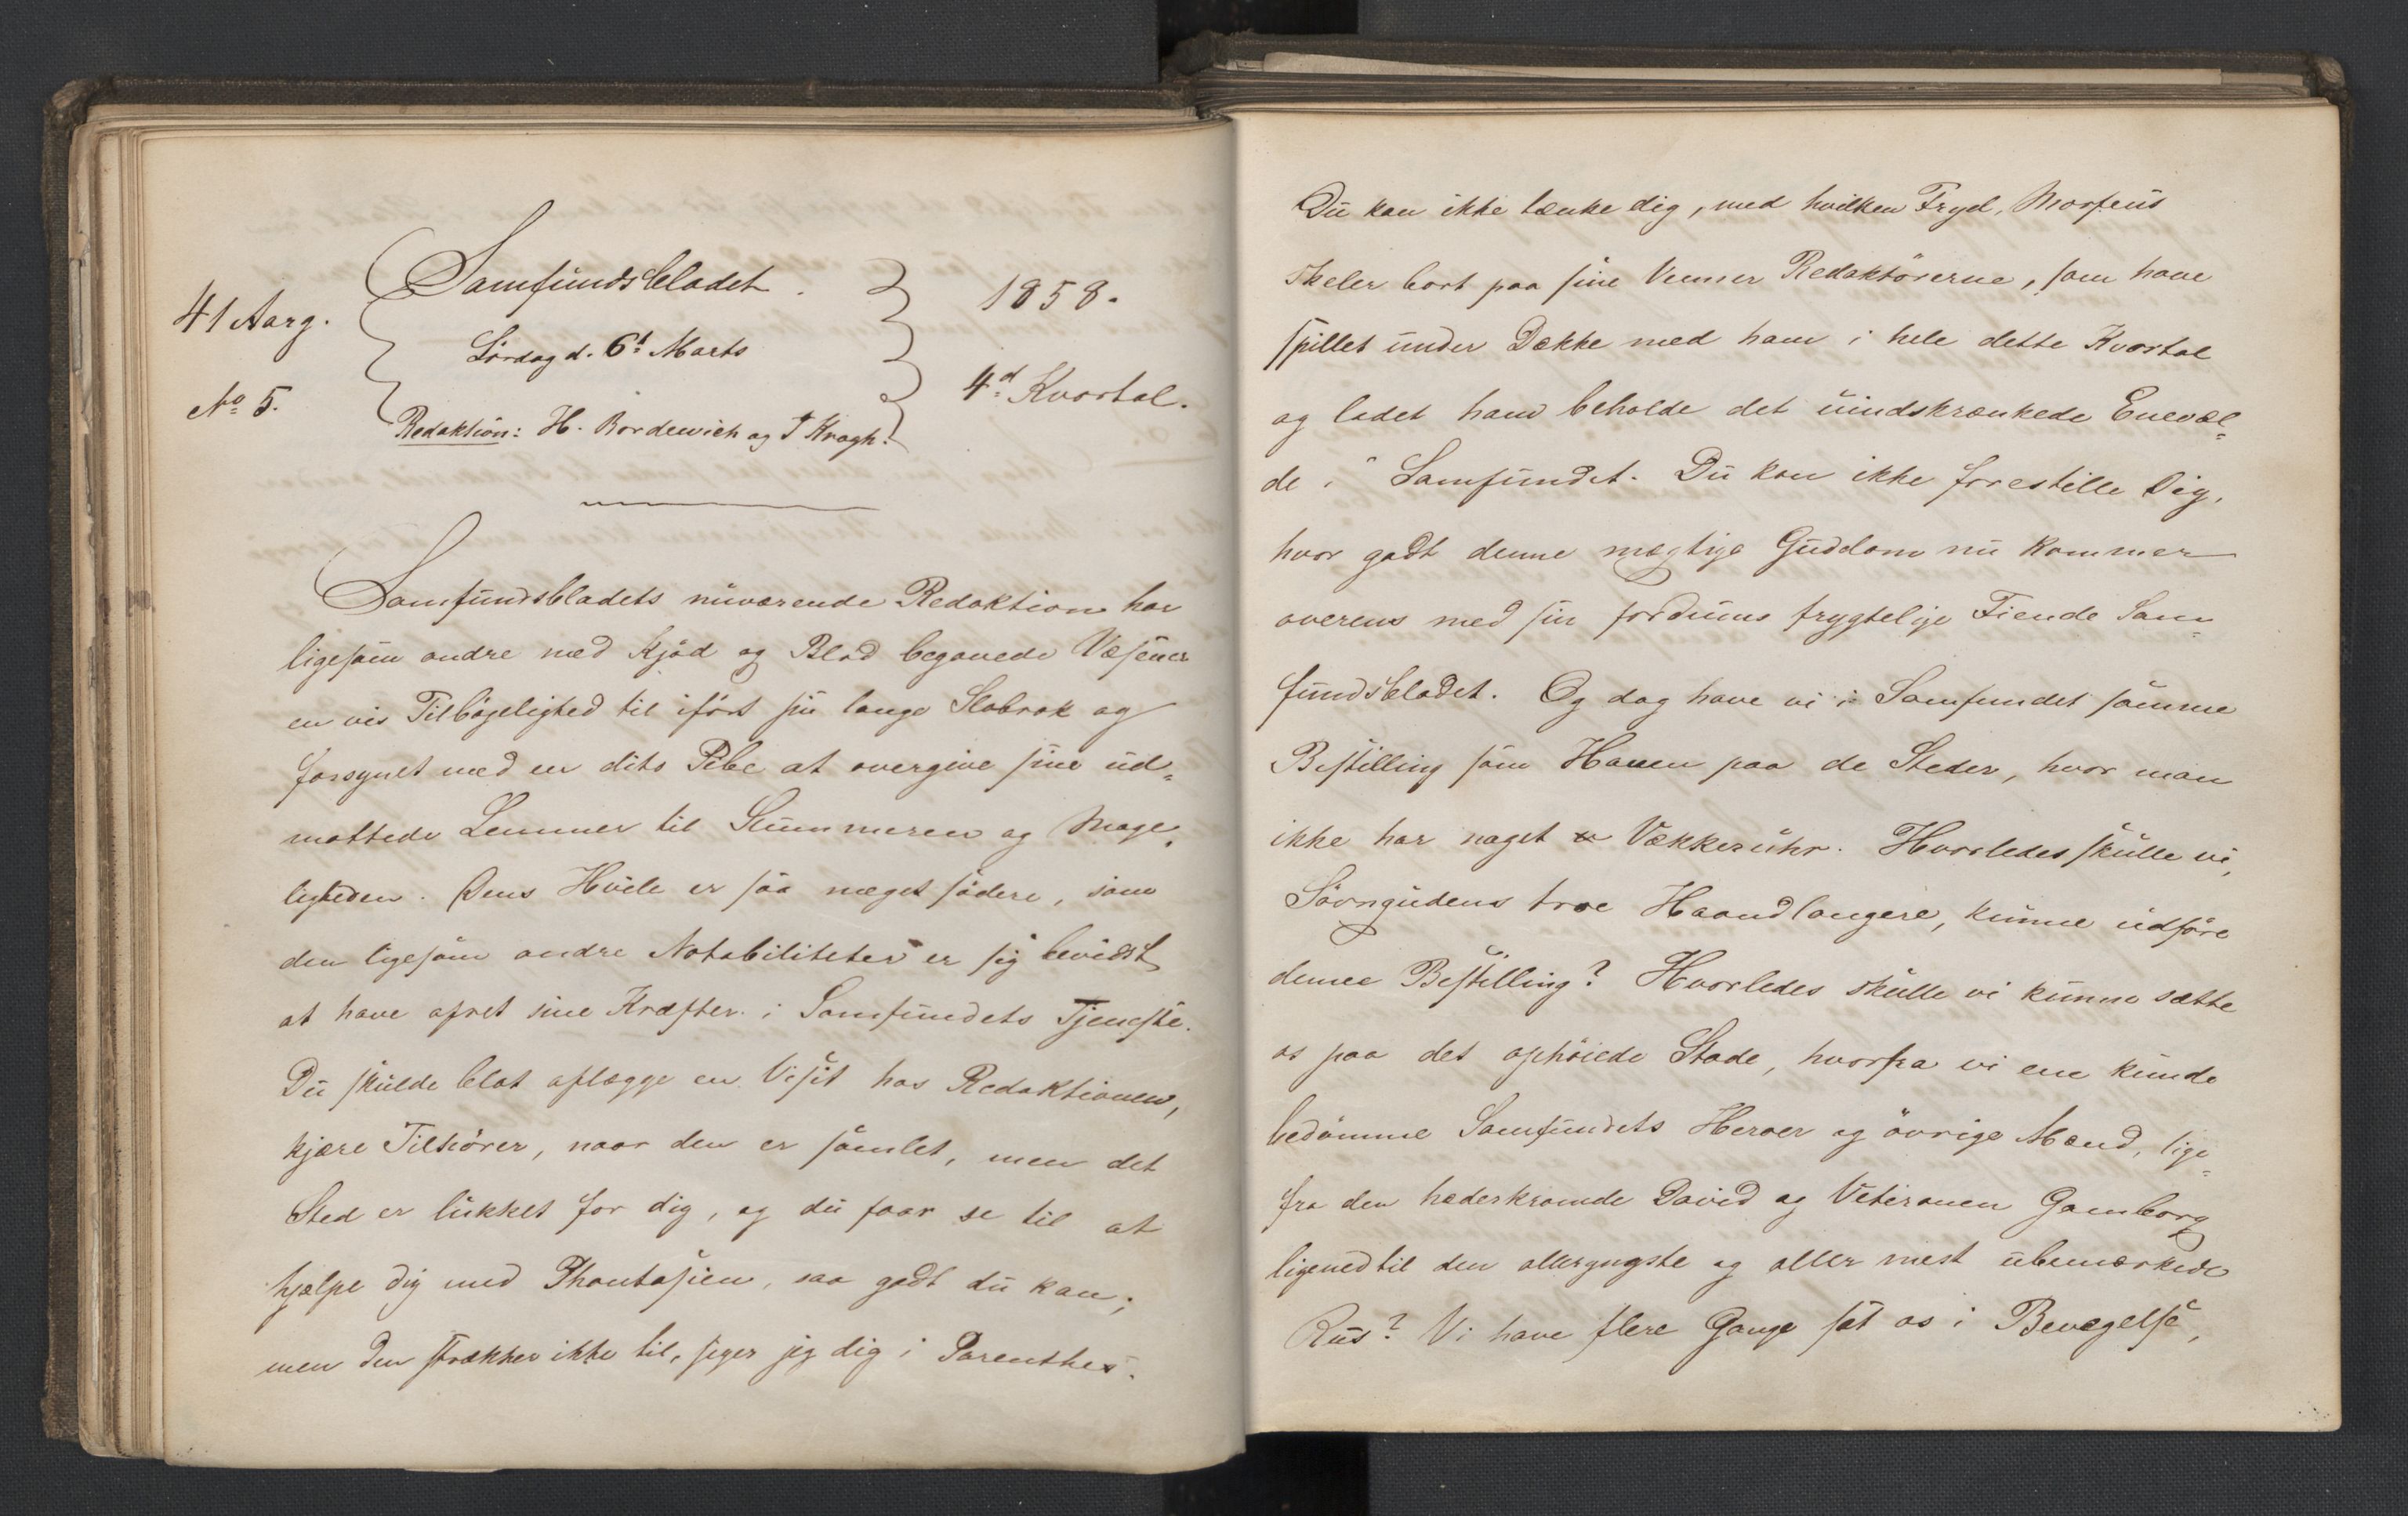 Samfundsbladet.
41 Aarg.
1858.
Lördag d. 6t Marts
No 5.
4d Kvartal.
Redaktion: H. Bordewich og T Kragh.
Samfundsbladets nuværende Redaktion har
ligesom andre med Kjöd og Blod begavede Væsener
en vis Tilböjelighed til iført sin lange Slobrok og
forsynet med en dito Pibe at overgive sine ud-
mattede Lemmer til Slummeren og Mage-
ligheden. Dens Hvile er saa meget södere, som
den ligesom andre Notabiliteter er sig bevidst
at have ofret sine Kræfter i Samfundets Tjeneste.
Du skulde blot aflægge en Visit hos Redaktionen,
kjære Tilhörer, naar den er samlet, men det
Sted er lukket for dig, og du faar se til at
hjælpe dig med Phantasien, saa godt du kan;
men den strækker ikke til, siger jeg dig i Parenthes.
Du kan ikke tænke dig, med hvilken Fryd, Morfeus
skeler bort paa sine Venner Redaktörerne, som have
spillet under Dække med ham i hele dette Kvartal
og ladet ham beholde det uindskrænkede Enevæl-
de i Samfundet. Du kan ikke forestille Dig,
hvor godt denne mægtige Guddom nu kommer
overens med sin fordums frygtelige Fiende Sam-
fundsbladet. Og dog have vi i Samfundet samme
Bestilling som Hanen paa de Steder, hvor man
ikke har noget Vækkeruhr. Hvorledes skulle vi,
Sövngudens troe Haandlangere, kunne udföre
denne Bestilling? Hvorledes skulle vi kunne sætte
os paa det ophöiede Stade, hvorfra vi ene kunde
bedömme Samfundets Heroer og övrige Mænd, lige
fra den hæderkronede David og Veteranen Gamborg
ligenedtil den alleryngste og aller mest ubemærkede
Rus? Vi have flere Gange sat os i Bevægelse,